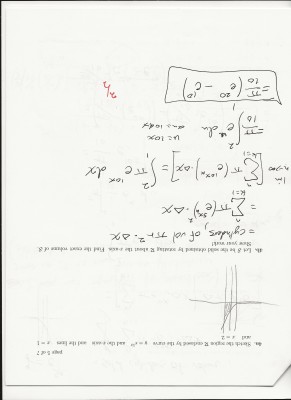 page 5 of 7
8a. Sketch the region R enclosed by the curve y = e^{5x} and the x-axis and the lines x = 1
and x = 2
8b. Let S be the solid obtained by rotating R about the x-axis. Find the exact volume of S.
Show your work!
= cylinders, of vol πr²·Δx
= n Σ k=1 π(e^{5x})²·Δx
lim n→∞ [n Σ k=1 π(e^{10x})·Δx] = ∫₁² π e^{10x} dx
u = 10x
du = 10dx
= π/10 ∫₁² e^u du
= π/10 (e^{20} - e^{10})